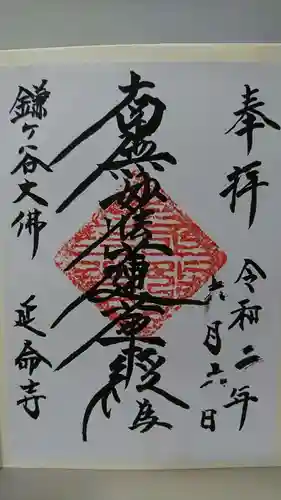 奉拝
令和二年
六月六日
南無妙法蓮華経
鎌ヶ谷大佛
延命寺